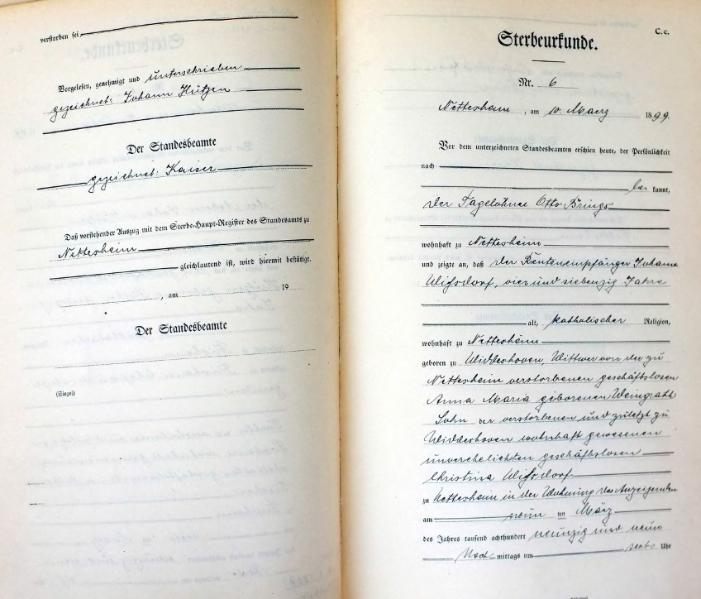 verstorben sei
Vorgelesen, genehmigt und unterschrieben
gezeichnet: Johann Hützen
Der Standesbeamte
gezeichnet: Kaiser
Daß vorstehender Auszug mit dem Sterbe-Haupt-Register des Standesamts zu
Nettersheim
gleichlautend ist, wird hiermit bestätigt.
, am 19
Der Standesbeamte
(Siegel)
C.c.
Sterbeurkunde.
Nr. 6
Nettersheim, am 10 Maerz 1899.
Vor dem unterzeichneten Standesbeamten erschien heute, der Persönlichkeit
nach
be kannt,
der Tagelöhner Otto Brings
wohnhaft zu Nettersheim
und zeigte an, daß der Rentenempfänger Johann
Wihsdorf, vier und siebenzig Jahre
alt, katholischer Religion,
wohnhaft zu Nettersheim
geboren zu Widdeshoven, Wittwer von der zu
Nettersheim verstorbenen geschäftslosen
Anna Maria geborenen
Sohn der verstorbenen und zuletzt zu
Widdeshoven wohnhaft gewesenen
unverehelichten geschäftslosen
Christina Wihsdorf
zu Nettersheim in der Wohnung des Anzeigenden
am neun ten März
des Jahres tausend achthundert neunzig und neun
Nach mittags um Uhr